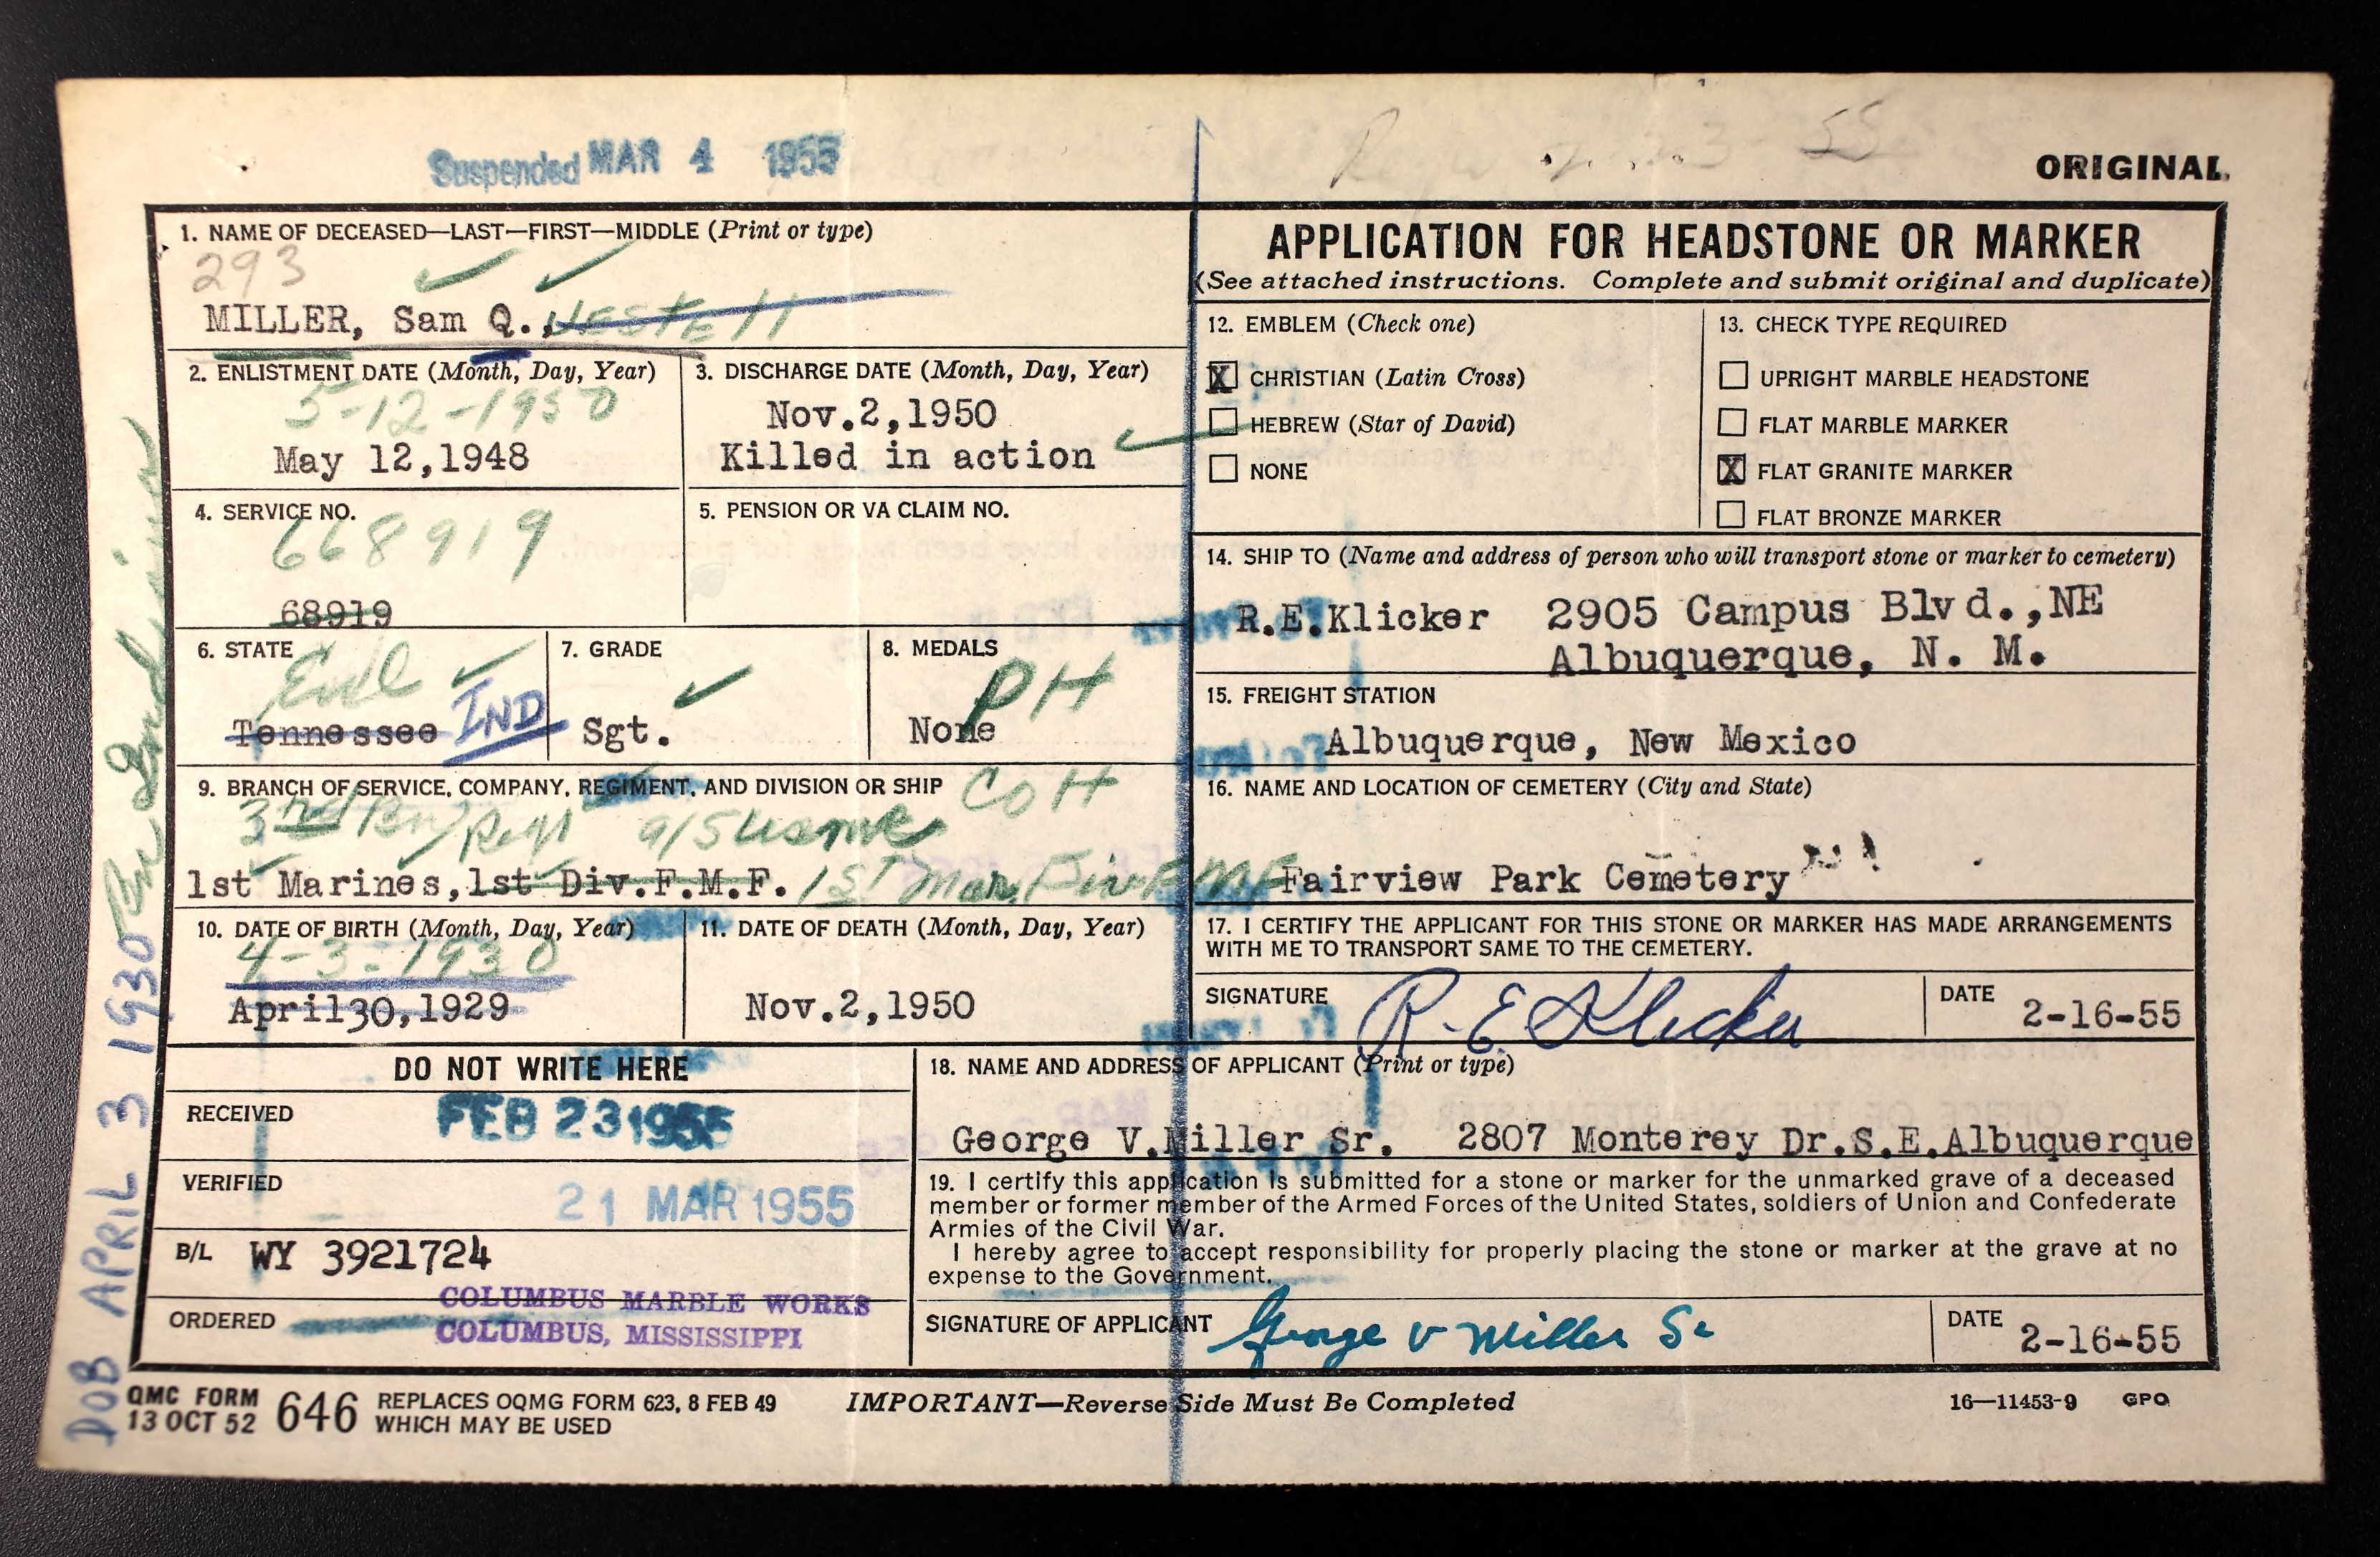 Suspended MAR 4 1955
ORIGINAL
1. NAME OF DECEASED—LAST—FIRST—MIDDLE (Print or type)
293
MILLER, Sam Q.,
2. ENLISTMENT DATE (Month, Day, Year)
5-12-1950
May 12,1948
3. DISCHARGE DATE (Month, Day, Year)
Nov.2,1950
Killed in action
4. SERVICE NO.
668919
68919
5. PENSION OR VA CLAIM NO.
6. STATE
Tennessee IND
7. GRADE
Sgt.
8. MEDALS
PH
None
9. BRANCH OF SERVICE, COMPANY, REGIMENT, AND DIVISION OR SHIP
CO H
3rd Bn
1st Marines, 1st Div.F.M.F. 1ST Mar. Div FMF
10. DATE OF BIRTH (Month, Day, Year)
4-3-1930
April30,1929
11. DATE OF DEATH (Month, Day, Year)
Nov.2,1950
APPLICATION FOR HEADSTONE OR MARKER
(See attached instructions. Complete and submit original and duplicate)
12. EMBLEM (Check one)
X CHRISTIAN (Latin Cross)
HEBREW (Star of David)
NONE
13. CHECK TYPE REQUIRED
UPRIGHT MARBLE HEADSTONE
FLAT MARBLE MARKER
X FLAT GRANITE MARKER
FLAT BRONZE MARKER
14. SHIP TO (Name and address of person who will transport stone or marker to cemetery)
R.E.Klicker 2905 Campus Blvd.,NE
Albuquerque, N. M.
15. FREIGHT STATION
Albuquerque, New Mexico
16. NAME AND LOCATION OF CEMETERY (City and State)
Fairview Park Cemetery
17. I CERTIFY THE APPLICANT FOR THIS STONE OR MARKER HAS MADE ARRANGEMENTS
WITH ME TO TRANSPORT SAME TO THE CEMETERY.
SIGNATURE R. E. Klicker
DATE 2-16-55
DO NOT WRITE HERE
RECEIVED FEB 23 1955
VERIFIED 21 MAR 1955
B/L WY 3921724
ORDERED
COLUMBUS MARBLE WORKS
COLUMBUS, MISSISSIPPI
18. NAME AND ADDRESS OF APPLICANT (Print or type)
George V.Miller Sr. 2807 Monterey Dr.S.E.Albuquerque
19. I certify this application is submitted for a stone or marker for the unmarked grave of a deceased
member or former member of the Armed Forces of the United States, soldiers of Union and Confederate
Armies of the Civil War.
I hereby agree to accept responsibility for properly placing the stone or marker at the grave at no
expense to the Government.
SIGNATURE OF APPLICANT George V Miller Sr
DATE 2-16-55
QMC FORM
13 OCT 52
646
REPLACES OQMG FORM 623, 8 FEB 49
WHICH MAY BE USED
IMPORTANT—Reverse Side Must Be Completed
16—11453-9 GPO
DOB APRIL 3 1930